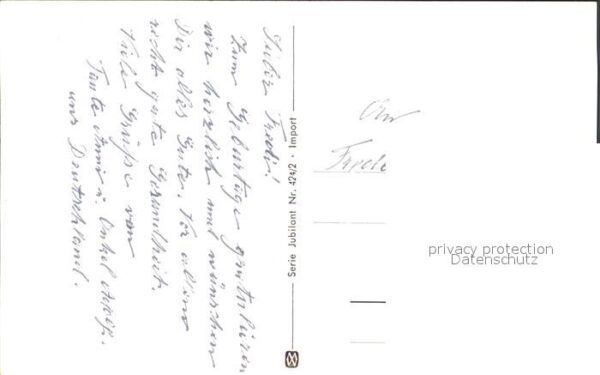 Lieber Fredi!
Zum Geburtstage gratulieren
wir herzlich und wünschen
Dir alles Gute. Vor allem
recht gute Gesundheit.
Viele Grüße von
Tante Anni u. Onkel
aus Deutschland.
Serie Jubilant Nr. 424/2 · Import
An
privacy protection
Datenschutz